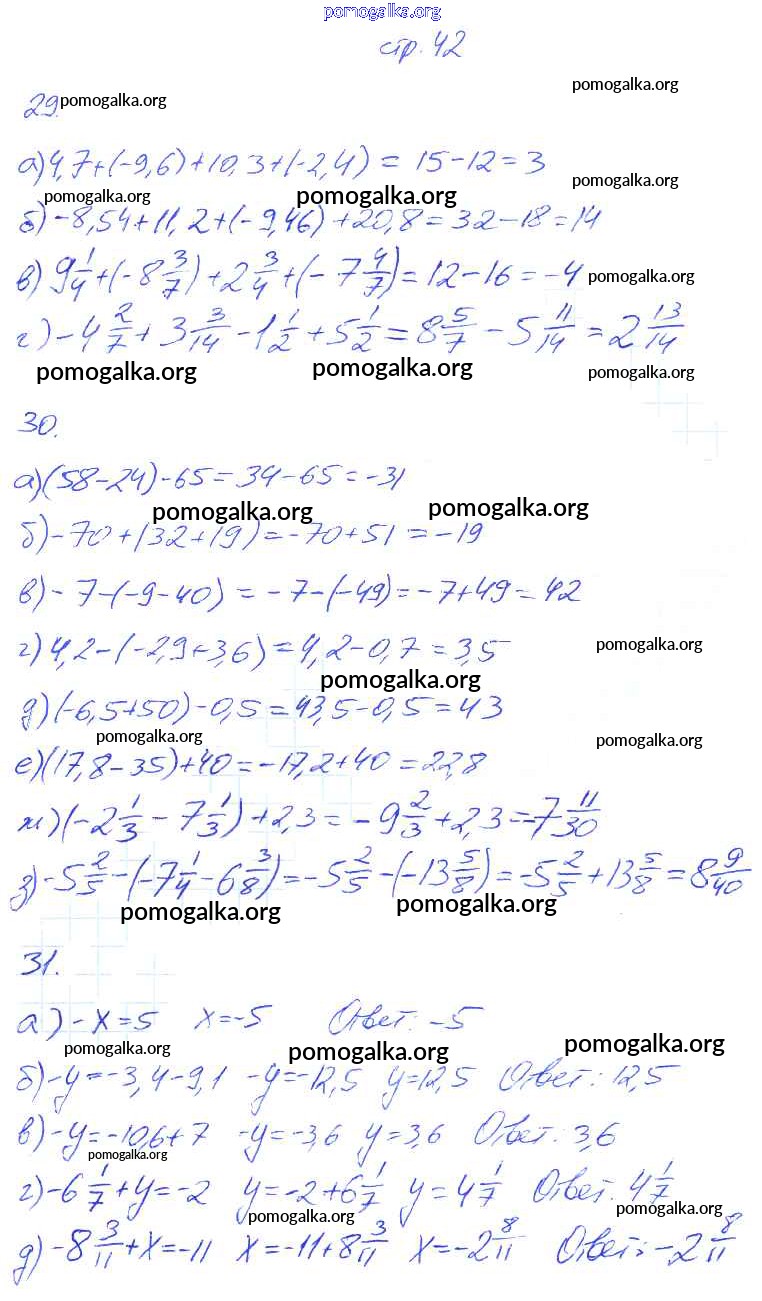 pomogalka.org
стр. 42
pomogalka.org
29. pomogalka.org
а) 4,7+(-9,6)+10,3+(-2,4) = 15-12=3
pomogalka.org
pomogalka.org pomogalka.org
б) -8,54+11,2+(-9,46)+20,8=32-18=14
в) 9 1/4+(-8 3/7)+2 3/4+(-7 4/7)=12-16=-4 pomogalka.org
г) -4 2/7+3 3/14-1 1/2+5 1/2=8 5/7-5 11/14=2 13/14
pomogalka.org pomogalka.org pomogalka.org
30.
а) (58-24)-65=34-65=-31
pomogalka.org pomogalka.org
б) -70+(32+19)=-70+51=-19
в) -7-(-9-40)=-7-(-49)=-7+49=42
г) 4,2-(-2,9+3,6)=4,2-0,7=3,5 pomogalka.org
pomogalka.org
д) (-6,5+50)-0,5=43,5-0,5=43
pomogalka.org pomogalka.org
е) (17,8-35)+40=-17,2+40=22,8
ж) (-2 1/3-7 1/3)+2,3=-9 2/3+2,3=-7 11/30
з) -5 2/5-(-7 1/4-6 3/8)=-5 2/5-(-13 5/8)=-5 2/5+13 5/8=8 9/40
pomogalka.org pomogalka.org
31.
а) -x=5 x=-5 Ответ: -5
pomogalka.org pomogalka.org pomogalka.org
б) -y=-3,4-9,1 -y=-12,5 y=12,5 Ответ: 12,5
в) -y=-10,6+7 -y=-3,6 y=3,6 Ответ: 3,6
pomogalka.org
г) -6 1/7+y=-2 y=-2+6 1/7 y=4 1/7 Ответ: 4 1/7
pomogalka.org pomogalka.org
д) -8 3/11+x=-11 x=-11+8 3/11 x=-2 8/11 Ответ: -2 8/11